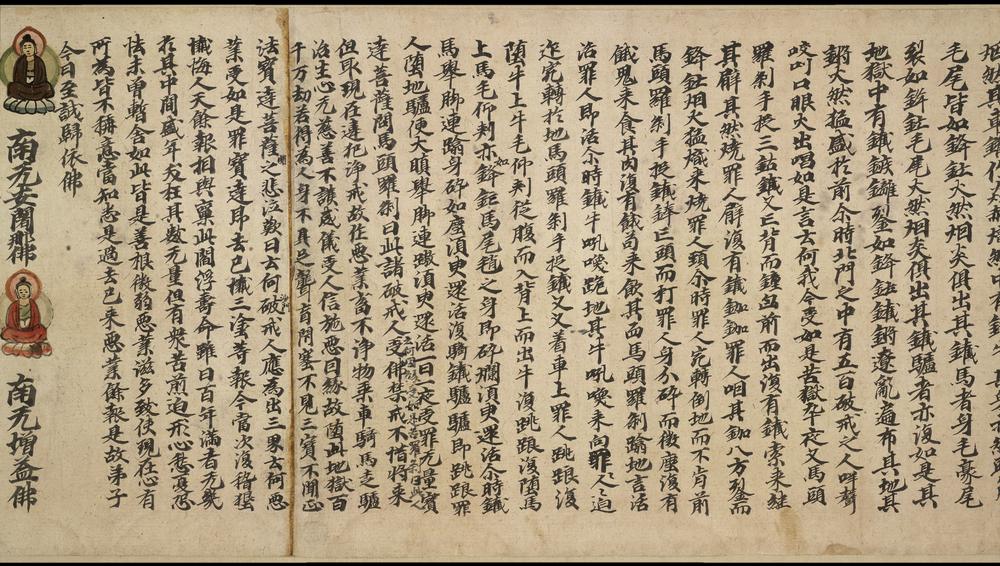 毛尾皆如鋒鋩火然烟炎俱出其鐵馬者身毛豪尾
裂如鋒鋩毛尾火然烟炎俱出其鐵驢者亦復如是其
地獄中有鐵鏃鏘如鋒鋩鐵鏘遼亂遍布其地其
鏘火然猛盛於前尒時北門之中有五百破戒之人聲
叫口眼火出唱如是言云何我今受如是苦獄卒夜叉馬頭
羅刹手捉三鈷鐵叉正背而鍾前而出復有鐵索來經
其辟其然燒罪人辟復有鐵鉫鉫罪人咽其鉫八方而
鋒鋩烟火猛熾來燒罪人頸尒時罪人宛轉倒地而不肯前
馬頭羅刹手捉鐵鉾正頭而打罪人身分碎而微塵復有
餓鬼來食其肉復有餓狗來飲其血馬頭羅刹蹹地言活
活罪人即活尒時鐵牛吼喚跑地其牛吼喚來向罪人人之道
迮宛轉於地馬頭羅刹手捉鐵叉叉着車上罪人跳踉復
墮牛上牛毛仰刺從腹而入背上而出牛復跳踉復墮馬
上馬毛仰刺亦如鋒鋩馬尾之身即碎爛須臾還活尒時鐵
馬舉脚連蹹身碎如塵須臾還活復騎鐵驢驢即跳踉罪
人墮地驢便大瞋舉脚連蹴須臾還活一日一夜受罪无量寶
達菩薩問馬頭羅刹曰此諸破戒人受佛禁戒不惜將來
但取現在違犯淨戒故任惡業畜不淨物乘車騎馬乏驢
治生心无慈善不護威儀受人信施惡因緣故墮此地獄百
千万劫若得為人身不具足聾盲閉塞不見三寶不聞正
法寶達菩薩聞之悲泣歎曰云何破戒人應為出三界云何惡
業受如是罪寶達即去已懺三塗等報今當次復稽顙
懺悔人天餘報相與稟此閻浮壽命雖曰百年滿者无幾
於其中間盛年夭枉其數无量但有衆苦煎迫形心愁憂恐
怯未曾暫舍如此皆是善根微弱惡業滋多致使現在心有
所為皆不稱意當知悉是過去已來惡業餘報是故弟子
今日至誠歸依佛
南无安闍那佛 南无增益佛